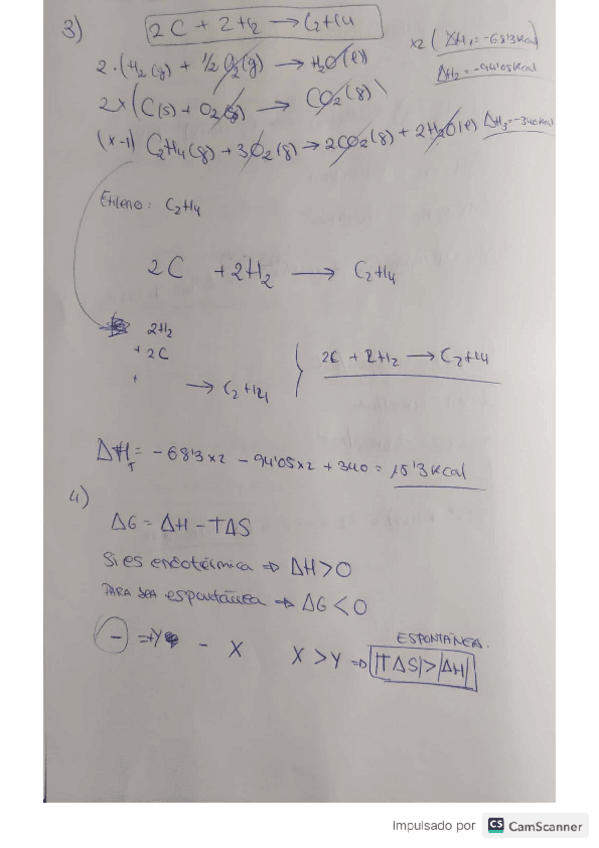 3) 2C + 2H2 → C2H4
2·(H2(g) + 1/2 O2(g) → H2O(l) x2 ( ΔH1 = -68'3 Kcal
ΔH2 = -94'05 Kcal
2x(C(s) + O2(g) → CO2(g))
(x-1) C2H4(g) + 3O2(g) → 2CO2(g) + 2H2O(l) ΔH3 = -340 Kcal
Etileno: C2H4
2C + 2H2 → C2H4
2H2
+ 2C
+ → C2H4 } 2C + 2H2 → C2H4
ΔHT = -68'3x2 - 94'05x2 + 340 = 15'3 Kcal
4)
ΔG = ΔH - TΔS
Si es endotérmica ⇒ ΔH > 0
PARA SEA espontánea ⇒ ΔG < 0
ESPONTÁNEA.
- = +Y - X X > Y ⇒ |TΔS| > |ΔH|
Impulsado por CS CamScanner